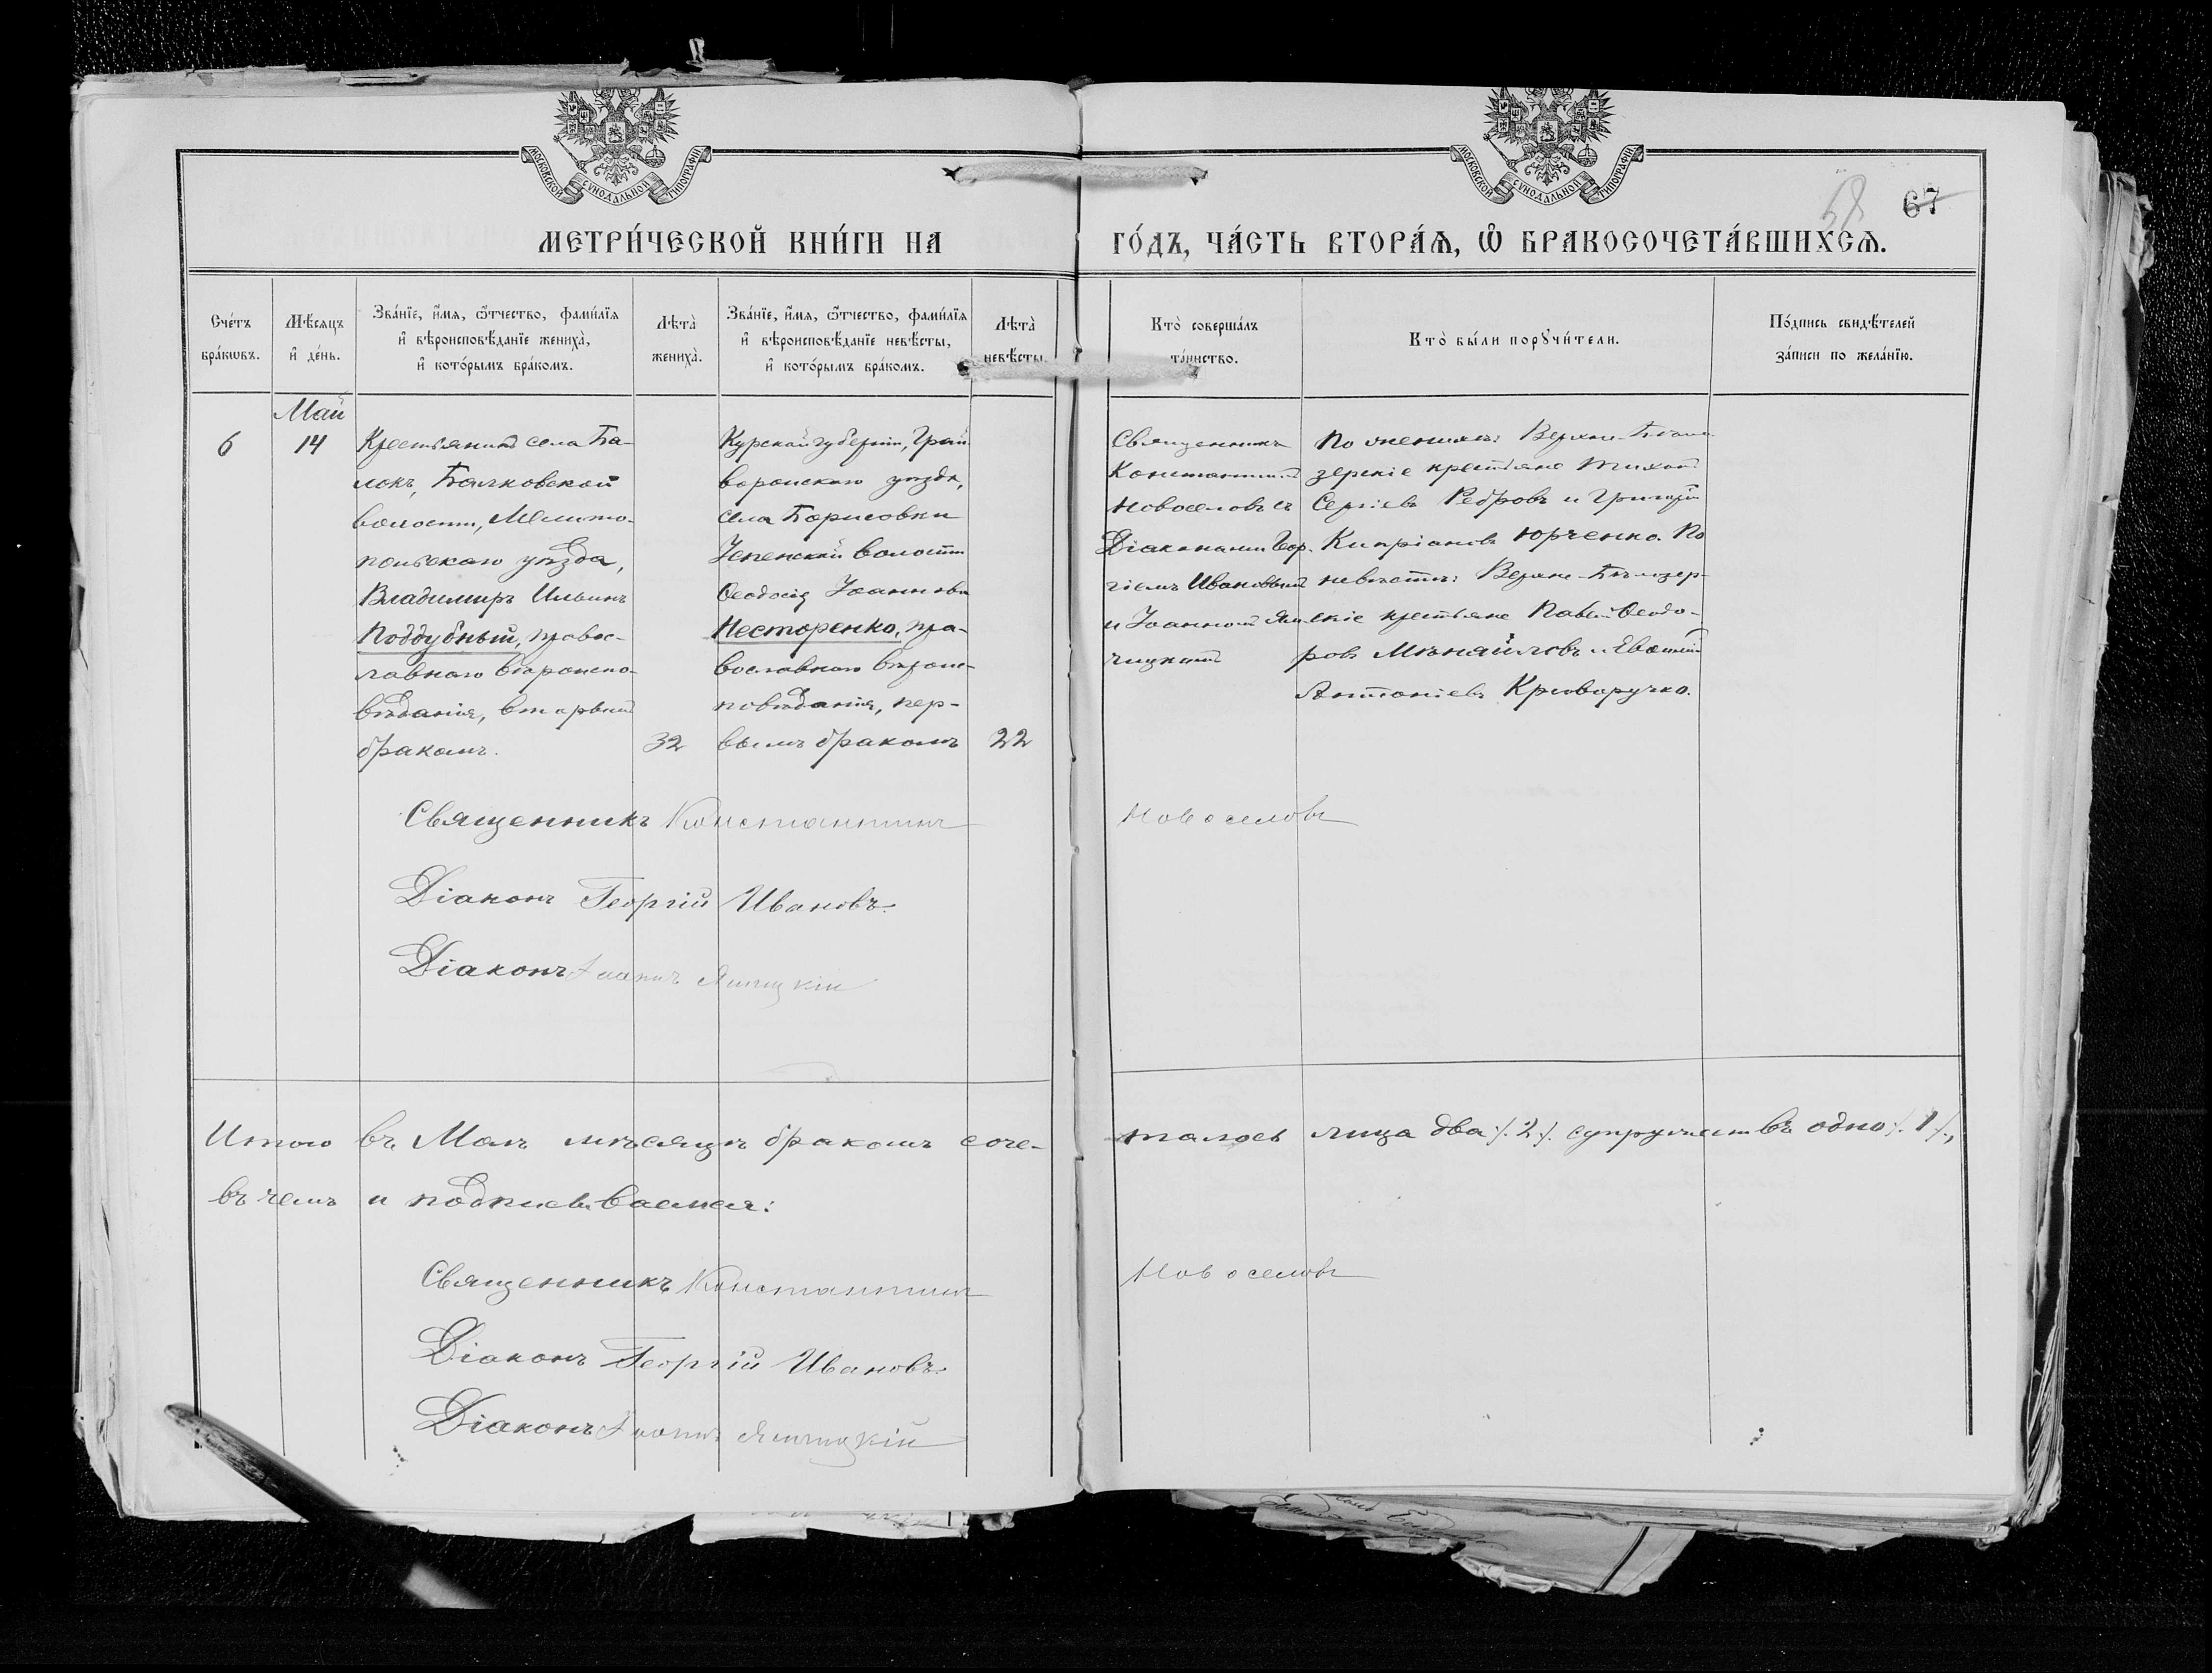 МОСКОВСКОЙ СѴНОДАЛЬНОЙ ТИПОГРАФІИ
МОСКОВСКОЙ СѴНОДАЛЬНОЙ ТИПОГРАФІИ
58 67
МЕТРИ́ЧЕСКОЙ КНИ́ГИ НА ГО́ДЪ, ЧА́СТЬ ВТОРА́Ѧ, Ѡ҆ БРАКОСОЧЕТА́ВШИХСѦ.
Сче́тъ
бра́кѡвъ.
Мѣ́сѧцъ
и҆ де́нь.
Зва́нїе, и҆́мѧ, ѻ҆́тчество, фамѝлїѧ
и҆ вѣроисповѣ́данїе жениха̀,
и҆ кото́рымъ бра́комъ.
Лѣта̀
жениха̀.
Зва́нїе, и҆́мѧ, ѻ҆́тчество, фамѝлїѧ
и҆ вѣроисповѣ́данїе невѣ́сты,
и҆ кото́рымъ бра́комъ.
Лѣта̀
невѣ́сты.
Кто̀ соверша́лъ
та́инство.
Кто̀ бы́ли порꙋчи́тели.
По́дпись свидѣ́телей
за́писи по жела́нїю.
Май
6
14
Крестьянинъ села Ба-
локъ, Балковской
волости, Мелито-
польскаго уѣзда,
Владимиръ Ильинъ
Поддубный, правос-
лавнаго вѣроиспо-
вѣданія, вторымъ
бракомъ.
32
Курской губерніи, Грай
воронскаго уѣзда,
села Борисовки
Успенской волости
Ѳеодосія Іоаннова
Несторенко, пра-
вославнаго вѣроис-
повѣданія, пер-
вымъ бракомъ
22
Священникъ
Константинъ
Новоселовъ съ
Діаконами Геор-
гіемъ Ивановымъ
и Іоанномъ Ям-
чицкимъ
По женихѣ: Верхне-Бѣло-
зерскіе крестьяне Тихонъ
Сергіевъ Ребровъ и Григорій
Кипріановъ Юрченко. По
невѣстѣ: Верхне-Бѣлозер-
скіе крестьяне Павелъ Ѳеодо-
ровъ Мѣняйловъ и
Антоніевъ Криворучко.
Священникъ Константинъ Новоселовъ
Діаконъ Георгій Ивановъ.
Діаконъ Іоаннъ
Итого въ Маѣ мѣсяцѣ бракомъ соче-талось лица два ./. 2 ./. супружествъ одно ./. 1 ./.,
въ чемъ и подписываемся:
Священникъ Константинъ Новоселовъ
Діаконъ Георгій Ивановъ.
Діаконъ Іоаннъ